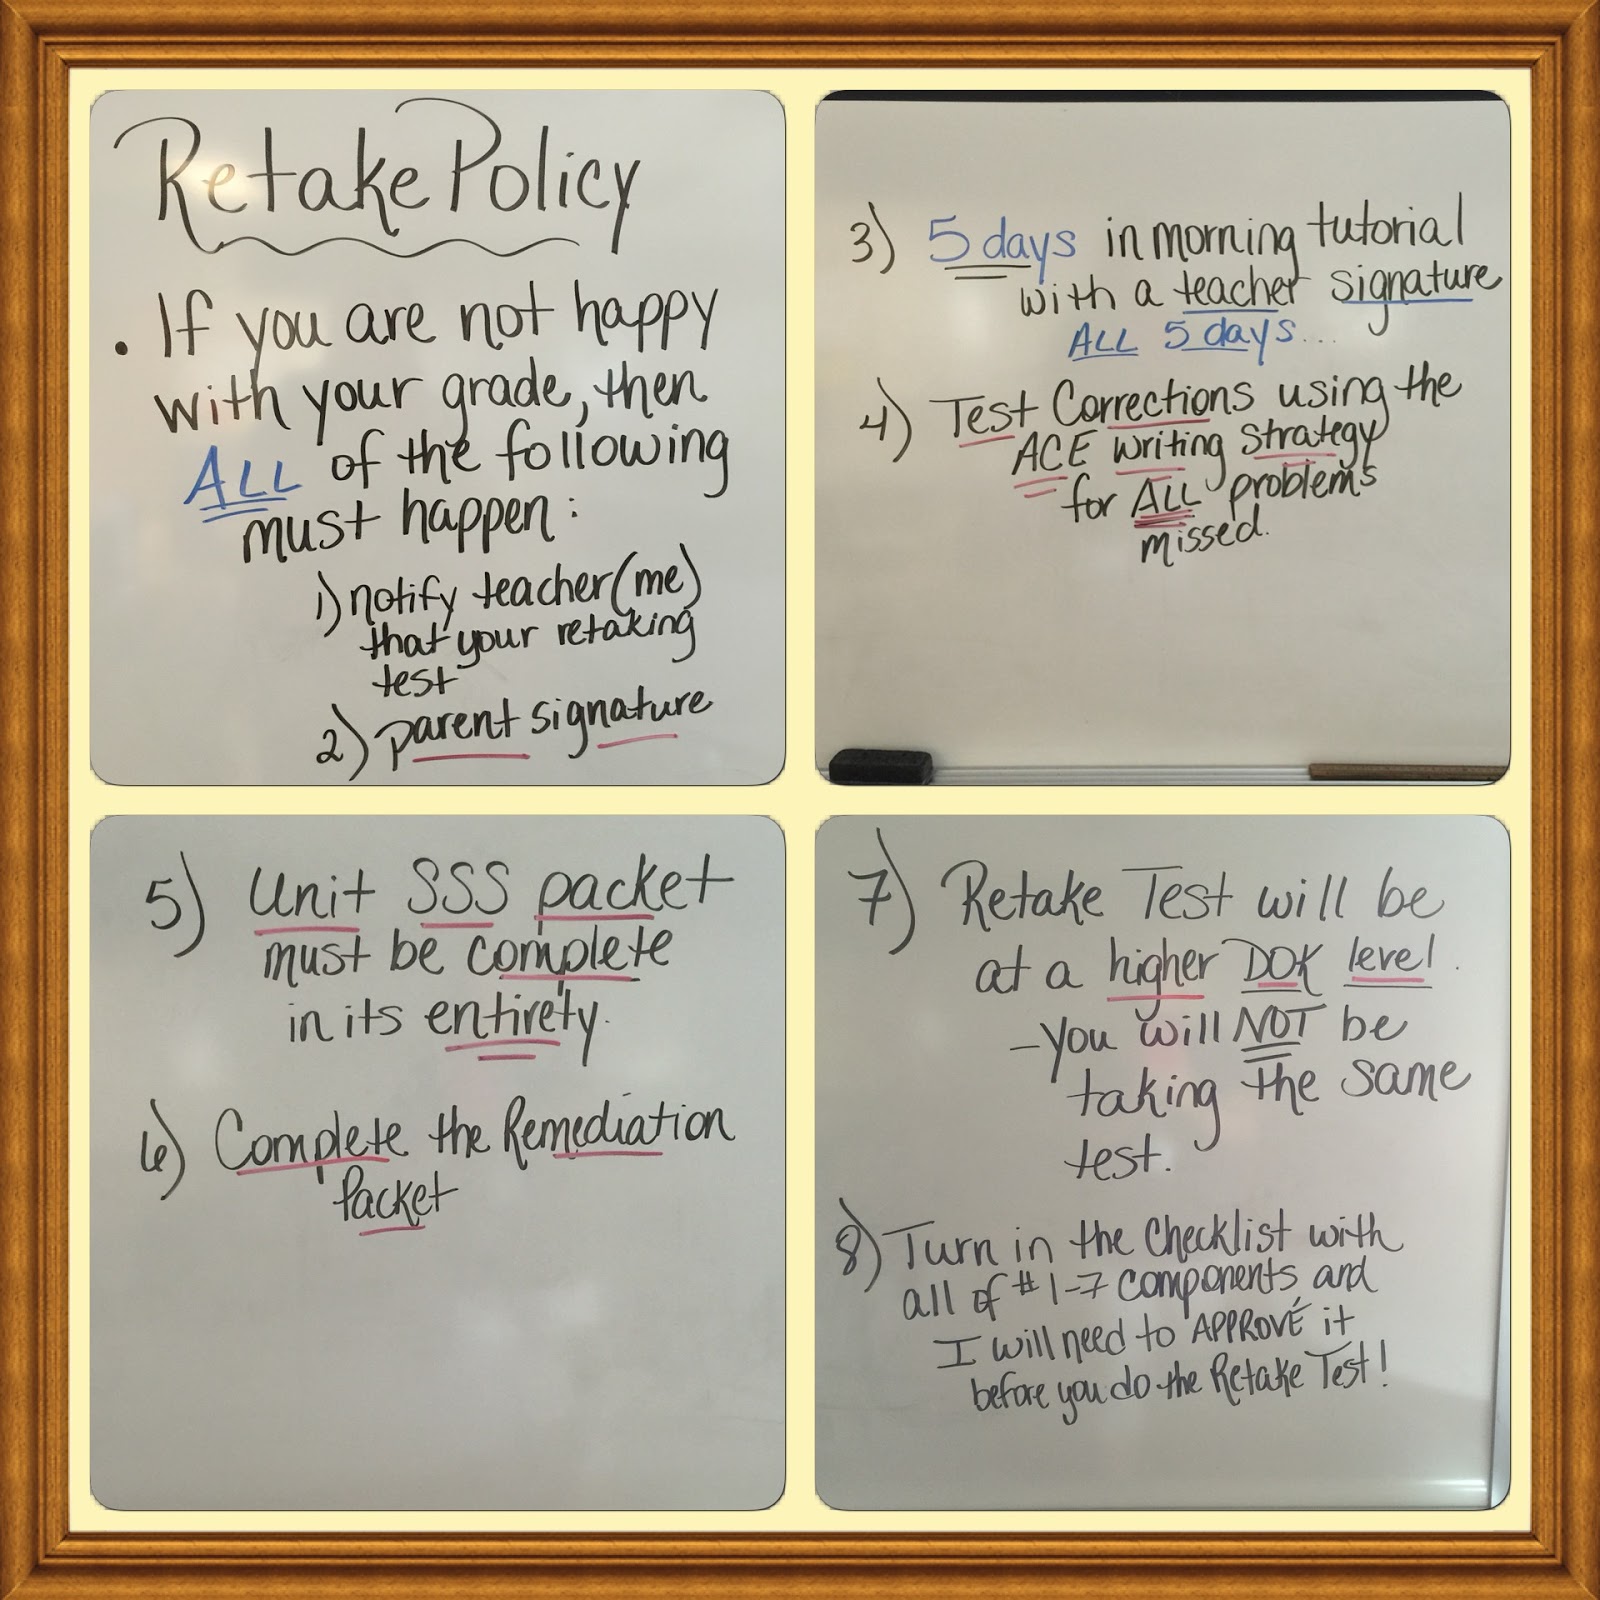 Retake Policy
. If you are not happy
with your grade, then
ALL of the following
must happen:
1) notify teacher (me)
that your retaking
test
2) parent signature
3) 5 days in morning tutorial
with a teacher signature
ALL 5 days...
4) Test Corrections using the
ACE writing strategy
for ALL problems
missed.
5) Unit SSS packet
must be complete
in its entirety.
6) Complete the Remediation
Packet
7) Retake Test will be
at a higher DOK level.
- you will NOT be
taking the same
test.
8) Turn in the Checklist with
all of #1-7 components, and
I will need to APPROVE it
before you do the Retake Test!